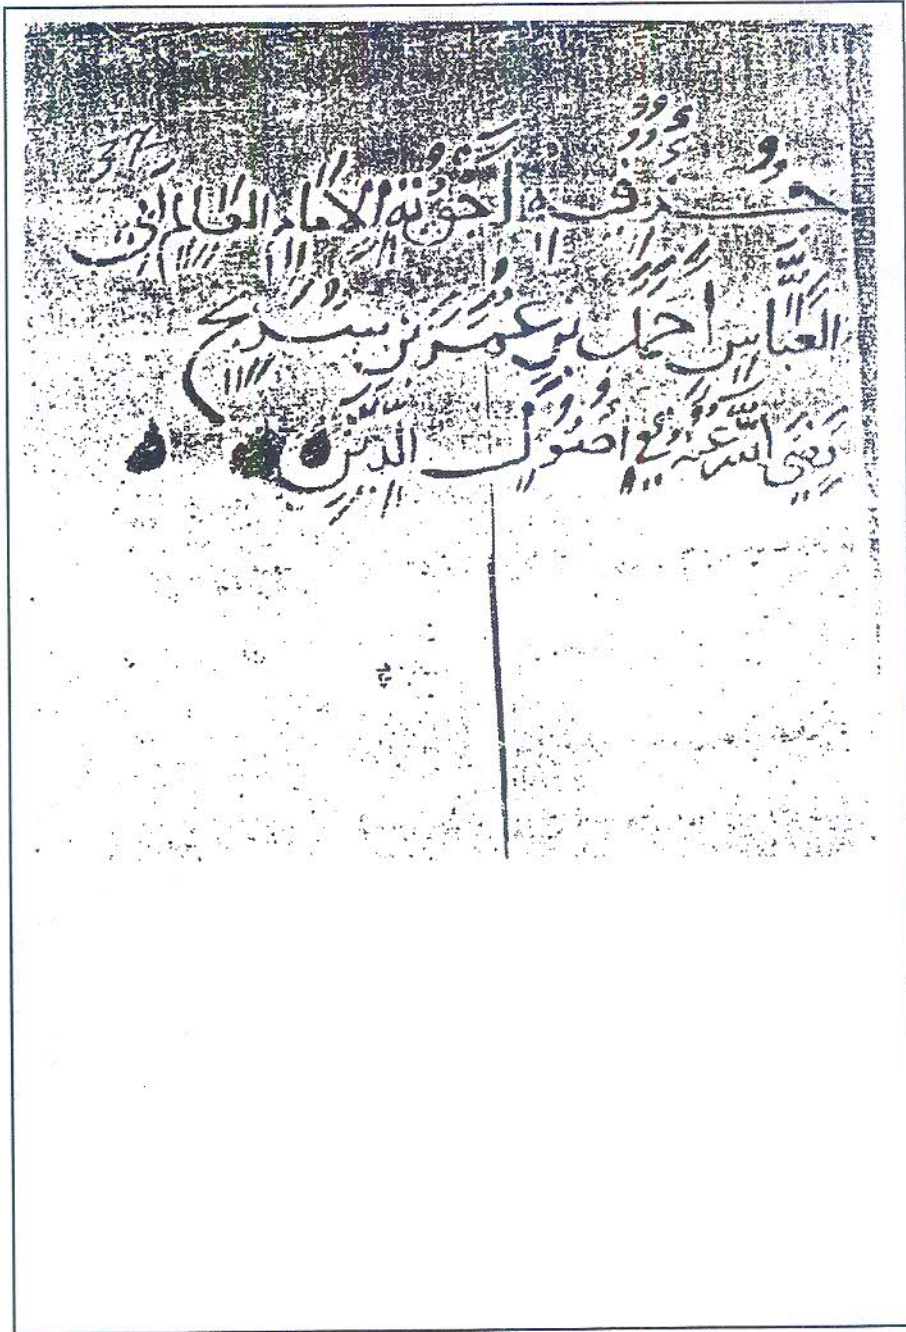 جزء فيه أجوبة الإمام العالم أبي
العباس أحمد بن عمر بن سريج
رضي الله عنه في أصول الدين